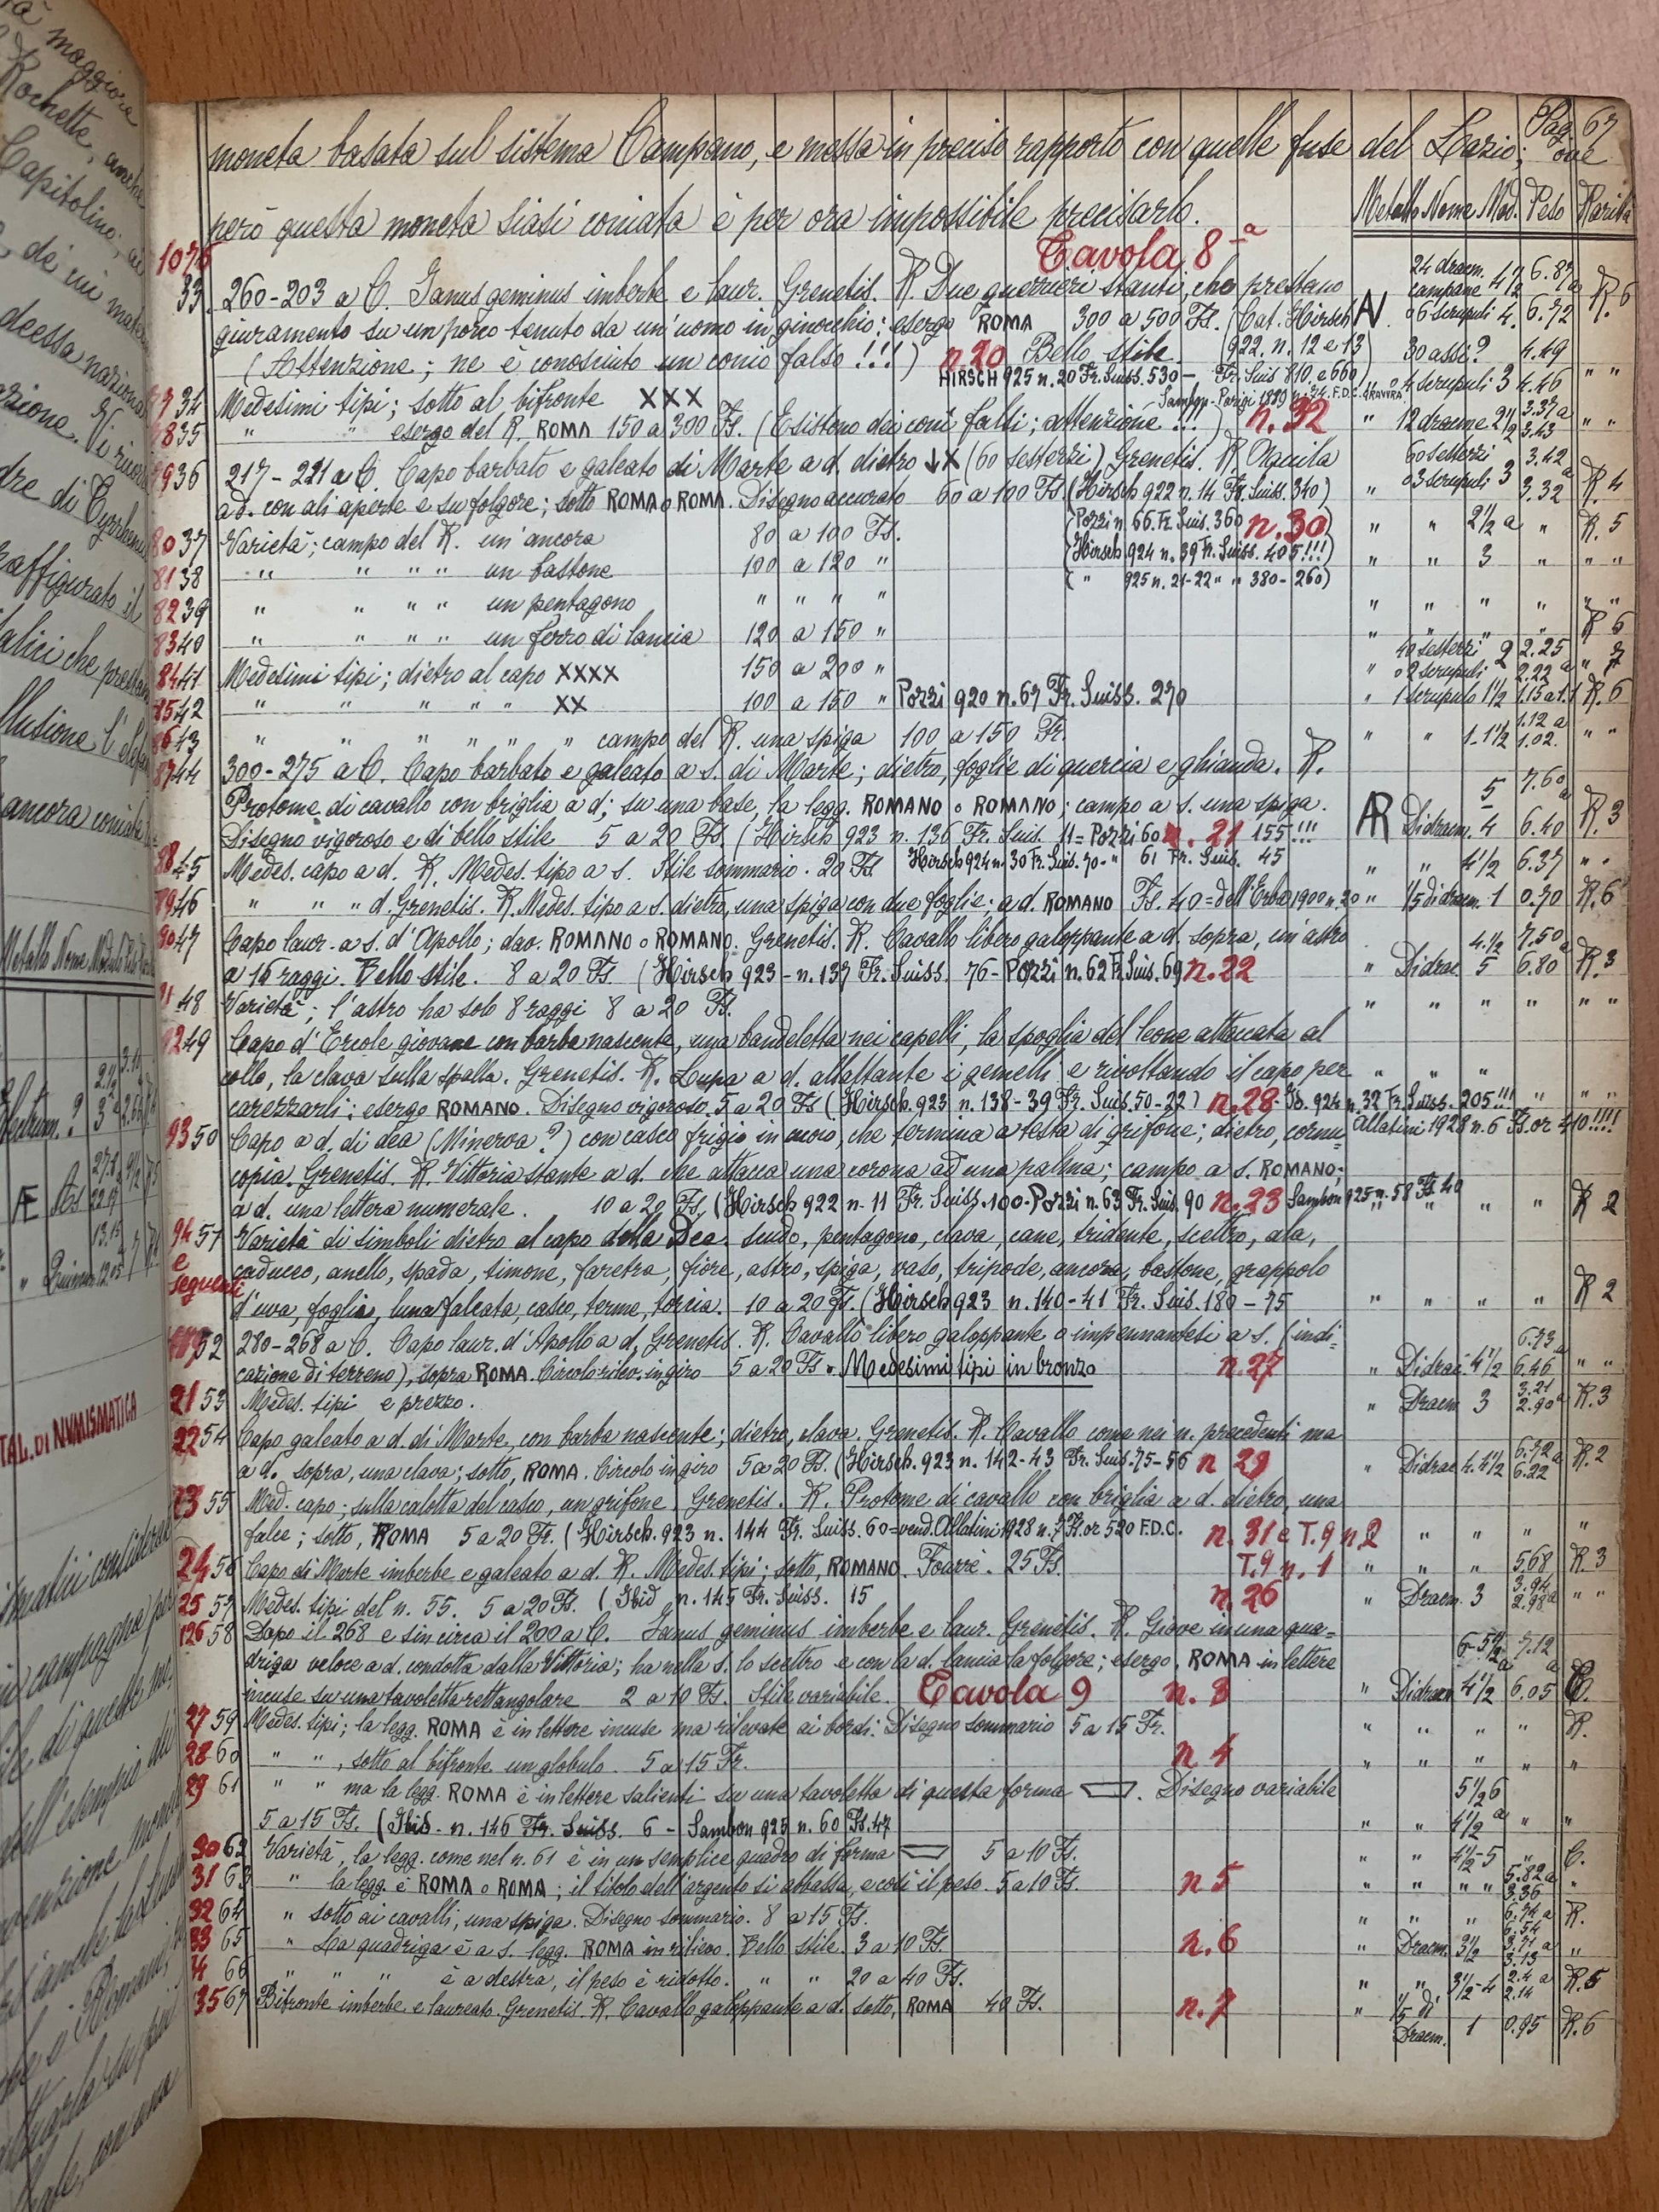 Pag. 67
moneta basata sul sistema Campano, e messa in preciso rapporto con quelle fuse del Lazio; ove
però questa moneta siasi coniata è per ora impossibile precisarlo.
Metallo Nome Mod. Peso Rarità
Tavola 8-a
1076
33. 260-203 a C. Janus geminus imberbe e laur. Grenetis. R. Due guerrieri stanti, che prestano 24 draem. campane 4 1/2 6.87 a R.6
giuramento su un porco tenuto da un'uomo in ginocchio; esergo ROMA 300 a 500 Fs. (Cat. Hirsch AV o 6 scrupuli 4. 6.72
(Attenzione; ne è conosciuto un conio falso!!!) n.20 Bello stile. (922. n. 12 e 13) 30 assi? 4.49
HIRSCH 925 n. 20 Fr. Suiss. 530 — Fr. Suis 810 e 660)
34 Medesimi tipi; sotto al bifronte XXX o 4 scrupuli 3 4.46 " "
Sambon-Parigi 1889 n. 74. F.D.C.
35 " " esergo del R. ROMA 150 a 300 Fs. (Esistono dei coni falsi; attenzione!!!) n.32 " 12 draeme 2 1/2 3.37 a 3.43 " "
36 217-211 a C. Capo barbato e galeato di Marte a d. dietro ↓X (60 sesterzi) Grenetis. R. Aquila 60 sesterzi 3.42 a
a d. con ali aperte e su folgore; sotto ROMA o ROMA. Disegno accurato 60 a 100 Fs (Hirsch 922 n. 14 Fr. Suiss. 340) " o 3 scrupuli 3 3.32 R.4
(Pozzi n. 66 Fr. Suis. 360 n.30)
80 37 Varietà; campo del R. un'ancora 80 a 100 Fs. " " 2 1/2 a " R.5
(Hirsch 924 n. 39 Fr. Suiss. 405!!!)
81 38 " " " " un bastone 100 a 120 " " " 3 " " "
( " 925 n. 21-22 " " 380-260)
82 39 " " " " un pentagono " " " " " " " " " "
83 40 " " " " un ferro di lancia 120 a 150 " " " " " R 6
84 41 Medesimi tipi; dietro al capo XXXX 150 a 200 " " 40 sesterzi o 2 scrupuli 2 2.25 a 2.22 " 7
85 42 " " " " " XX 100 a 150 " Pozzi 920 n. 67 Fr. Suiss. 270 " 1 scrupulo 1 1/2 1.15 a 1.1 R.6
86 43 " " " " " " " campo del R. una spiga 100 a 150 Fr. " " 1-1 1/2 1.12 a 1.02. " "
87 44 300-275 a C. Capo barbato e galeato a s. di Marte; dietro, foglie di quercia e ghianda. R.
Protome di cavallo con briglia a d; su una base, la legg. ROMANO o ROMANO; campo a s. una spiga. 5 7.60 a
Disegno vigoroso e di bello stile 5 a 20 Fs. (Hirsch 923 n. 136 Fr. Suis. 11 = Pozzi 60 n.21 155!!! AR Didraem. 4 6.40 R.3
88 45 Medes. capo a d. R. Medes. tipo a s. Stile sommario. 20 Fs Hirsch 924 n. 30 Fr. Suis. 70 - " 61 Fr. Suis. 45 " " 4 1/2 6.37 " "
89 46 " " " d. Grenetis. R. Medes. tipo a s. dietro, una spiga con due foglie: a d. ROMANO Fs. 40 = dell'Erba 1900 n. 20 " 1/5 didraem. 1 0.70 R.6
90 47 Capo laur. a s. d'Apollo; dav. ROMANO o ROMANO. Grenetis. R. Cavallo libero galoppante a d. sopra, un'astro 4.1/2 7.50 a
a 16 raggi. Bello stile. 8 a 20 Fs (Hirsch 923 - n. 137 Fr. Suiss. 76 - Pozzi n. 62 Fr. Suis. 69 n.22 " Didrae 5 6.80 R.3
91 48 Varietà; l'astro ha solo 8 raggi 8 a 20 Fs. " " " " " "
92 49 Capo d'Ercole giovane con barba nascente, una bandeletta nei capelli, la spoglia del leone attaccata al
collo, la clava sulla spalla. Grenetis. R. Lupa a d. allattante i gemelli e rivoltando il capo per " " "
carezzarli; esergo ROMANO. Disegno vigoroso. 5 a 20 Fs (Hirsch. 923 n. 138-39 Fr. Suis. 50-22) n.28 - Jd. 924 n. 32 Fr. Suiss. 205!!! " " "
93 50 Capo a d. di dea (Minerva?) con casco frigio in cuoio, che termina a testa di grifone; dietro, cornu- Allatini 1928 n. 6 Fs. or 410!!!!
copia. Grenetis. R. Vittoria stante a d. che attacca una corona ad una palma; campo a s. ROMANO;
a d. una lettera numerale. 10 a 20 Fs. (Hirsch 922 n. 11 Fr. Suiss. 100 - Pozzi n. 63 Fr. Suis. 90 n.23 Sambon 925 n. 58 Fs. 40 " " R 2
94 51 Varietà di simboli dietro al capo della Dea. scudo, pentagono, clava, cane, tridente, scettro, ala,
e seguenti caduceo, anello, spada, timone, faretra, fiore, astro, spiga, vaso, tripode, ancora, bastone, grappolo
d'uva, foglia, luna falcata, casco, terme, torcia. 10 a 20 Fs. (Hirsch 923 n. 140-41 Fr. Suis. 180-75 " " " " R 2
52 280-268 a C. Capo laur. d'Apollo a d, Grenetis. R. Cavallo libero galoppante o impennantesi a s. (indi- 6.73 a
cazione di terreno), sopra ROMA. Circolo rilev. in giro 5 a 20 Fs. Medesimi tipi in bronzo n.27 " Didrae 4 1/2 6.46 " "
21 53 Medes. tipi e prezzo. " Draem 3 3.21 2.90 a R.3
22 54 Capo galeato a d. di Marte, con barba nascente; dietro, clava. Grenetis. R. Cavallo come nei n. precedenti ma
a d. sopra, una clava; sotto, ROMA. Circolo in giro 5 a 20 Fs. (Hirsch. 923 n. 142-43 Fr. Suis. 75-56 n 29 " Didrae 4. 4 1/2 6.72 a 6.22 R.2
23 55 Med. capo; sulla calotta del casco, un grifone. Grenetis. R. Protome di cavallo con briglia a d. dietro, una
falce; sotto, ROMA 5 a 20 Fr. (Hirsch. 923 n. 144 Fr. Suiss. 60 = vend. Allatini 1928 n. 7 Fs. or 520 F.D.C. n.31 e T.9 n 2 " " " "
24 56 Capo di Marte imberbe e galeato a d. R. Medes. tipi; sotto, ROMANO. Fourré. 25 Fs. T.9 n.1 " " " 5.68 R.3
25 57 Medes. tipi del n. 55. 5 a 20 Fs. (Ibid n. 145 Fr. Suiss. 15 n.26 " Draem. 3 3.94 2.98 a " "
126 58 Dopo il 268 e sin circa il 200 a C. Janus geminus imberbe e laur. Grenetis. R. Giove in una qua-
driga veloce a d. condotta dalla Vittoria; ha nella s. lo scettro e con la d. lancia la folgore; esergo, ROMA in lettere 6-5 1/2 a 7.12 a
incuse su una tavoletta rettangolare 2 a 10 Fs. Stile variabile. Tavola 9 n.3 " Didraem 4 1/2 6.05 C.
27 59 Medes. tipi; la legg. ROMA è in lettere incuse ma rilevate ai bordi. Disegno sommario 5 a 15 Fr. " " " " R.
28 60 " " , sotto al bifronte un globulo. 5 a 15 Fr. n 4 " " " " "
29 61 " " ma la legg. ROMA è in lettere salienti su una tavoletta di questa forma . Disegno variabile 5 1/2 6
5 a 15 Fs. (Ibid - n. 146 Fr. Suiss. 6 - Sambon 925 n. 60 Fs. 47 " " 4 1/2 a " "
30 62 Varietà, la legg. come nel n. 61 è in un semplice quadro di forma 5 a 10 Fs. " " 4 1/2-5 " C.
31 63 " la legg. è ROMA o ROMA; il titolo dell'argento si abbassa, e così il peso. 5 a 10 Fs. n 5 " " " " 5.82 a 3.36 "
32 64 " sotto ai cavalli, una spiga. Disegno sommario. 8 a 15 Fs. " " " 6.74 a 6.54 R.
33 65 " La quadriga è a s. legg. ROMA in rilievo. Bello stile. 3 a 10 Fs. n.6 " Draem. 3 1/2 3.71 a 3.13 "
34 66 " " " è a destra, il peso è ridotto. " " 20 a 40 Fs. " " 3 1/2-4 2.4 a 2.14 R.5
35 67 Bifronte imberbe e laureato. Grenetis. R. Cavallo galoppante a d. sotto, ROMA 40 Fs. n.7 " 1/5 di Draem. 1 0.95 R.6
TAL. DI NVMISMATICA